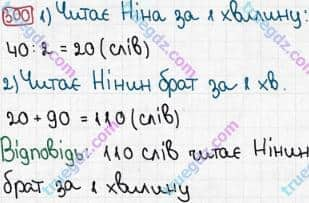 300 1) Читає Ніна за 1 хвилину:
40 : 2 = 20 (слів)
2) Читає Нінин брат за 1 хв.
20 + 90 = 110 (слів)
Відповідь: 110 слів читає Нінин
брат за 1 хвилину